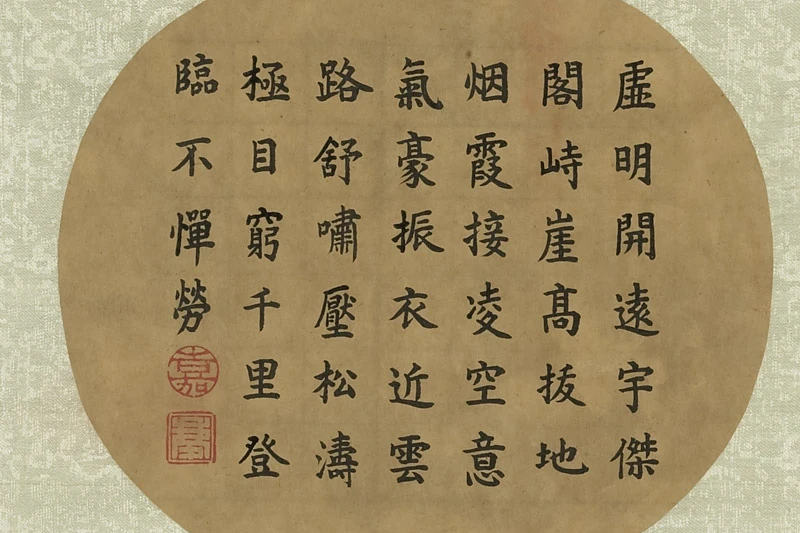 虛明開遠宇傑
閣峙崖髙拔地
烟霞接凌空意
氣豪振衣近雲
路舒嘯壓松濤
極目窮千里登
臨不憚勞
嘉